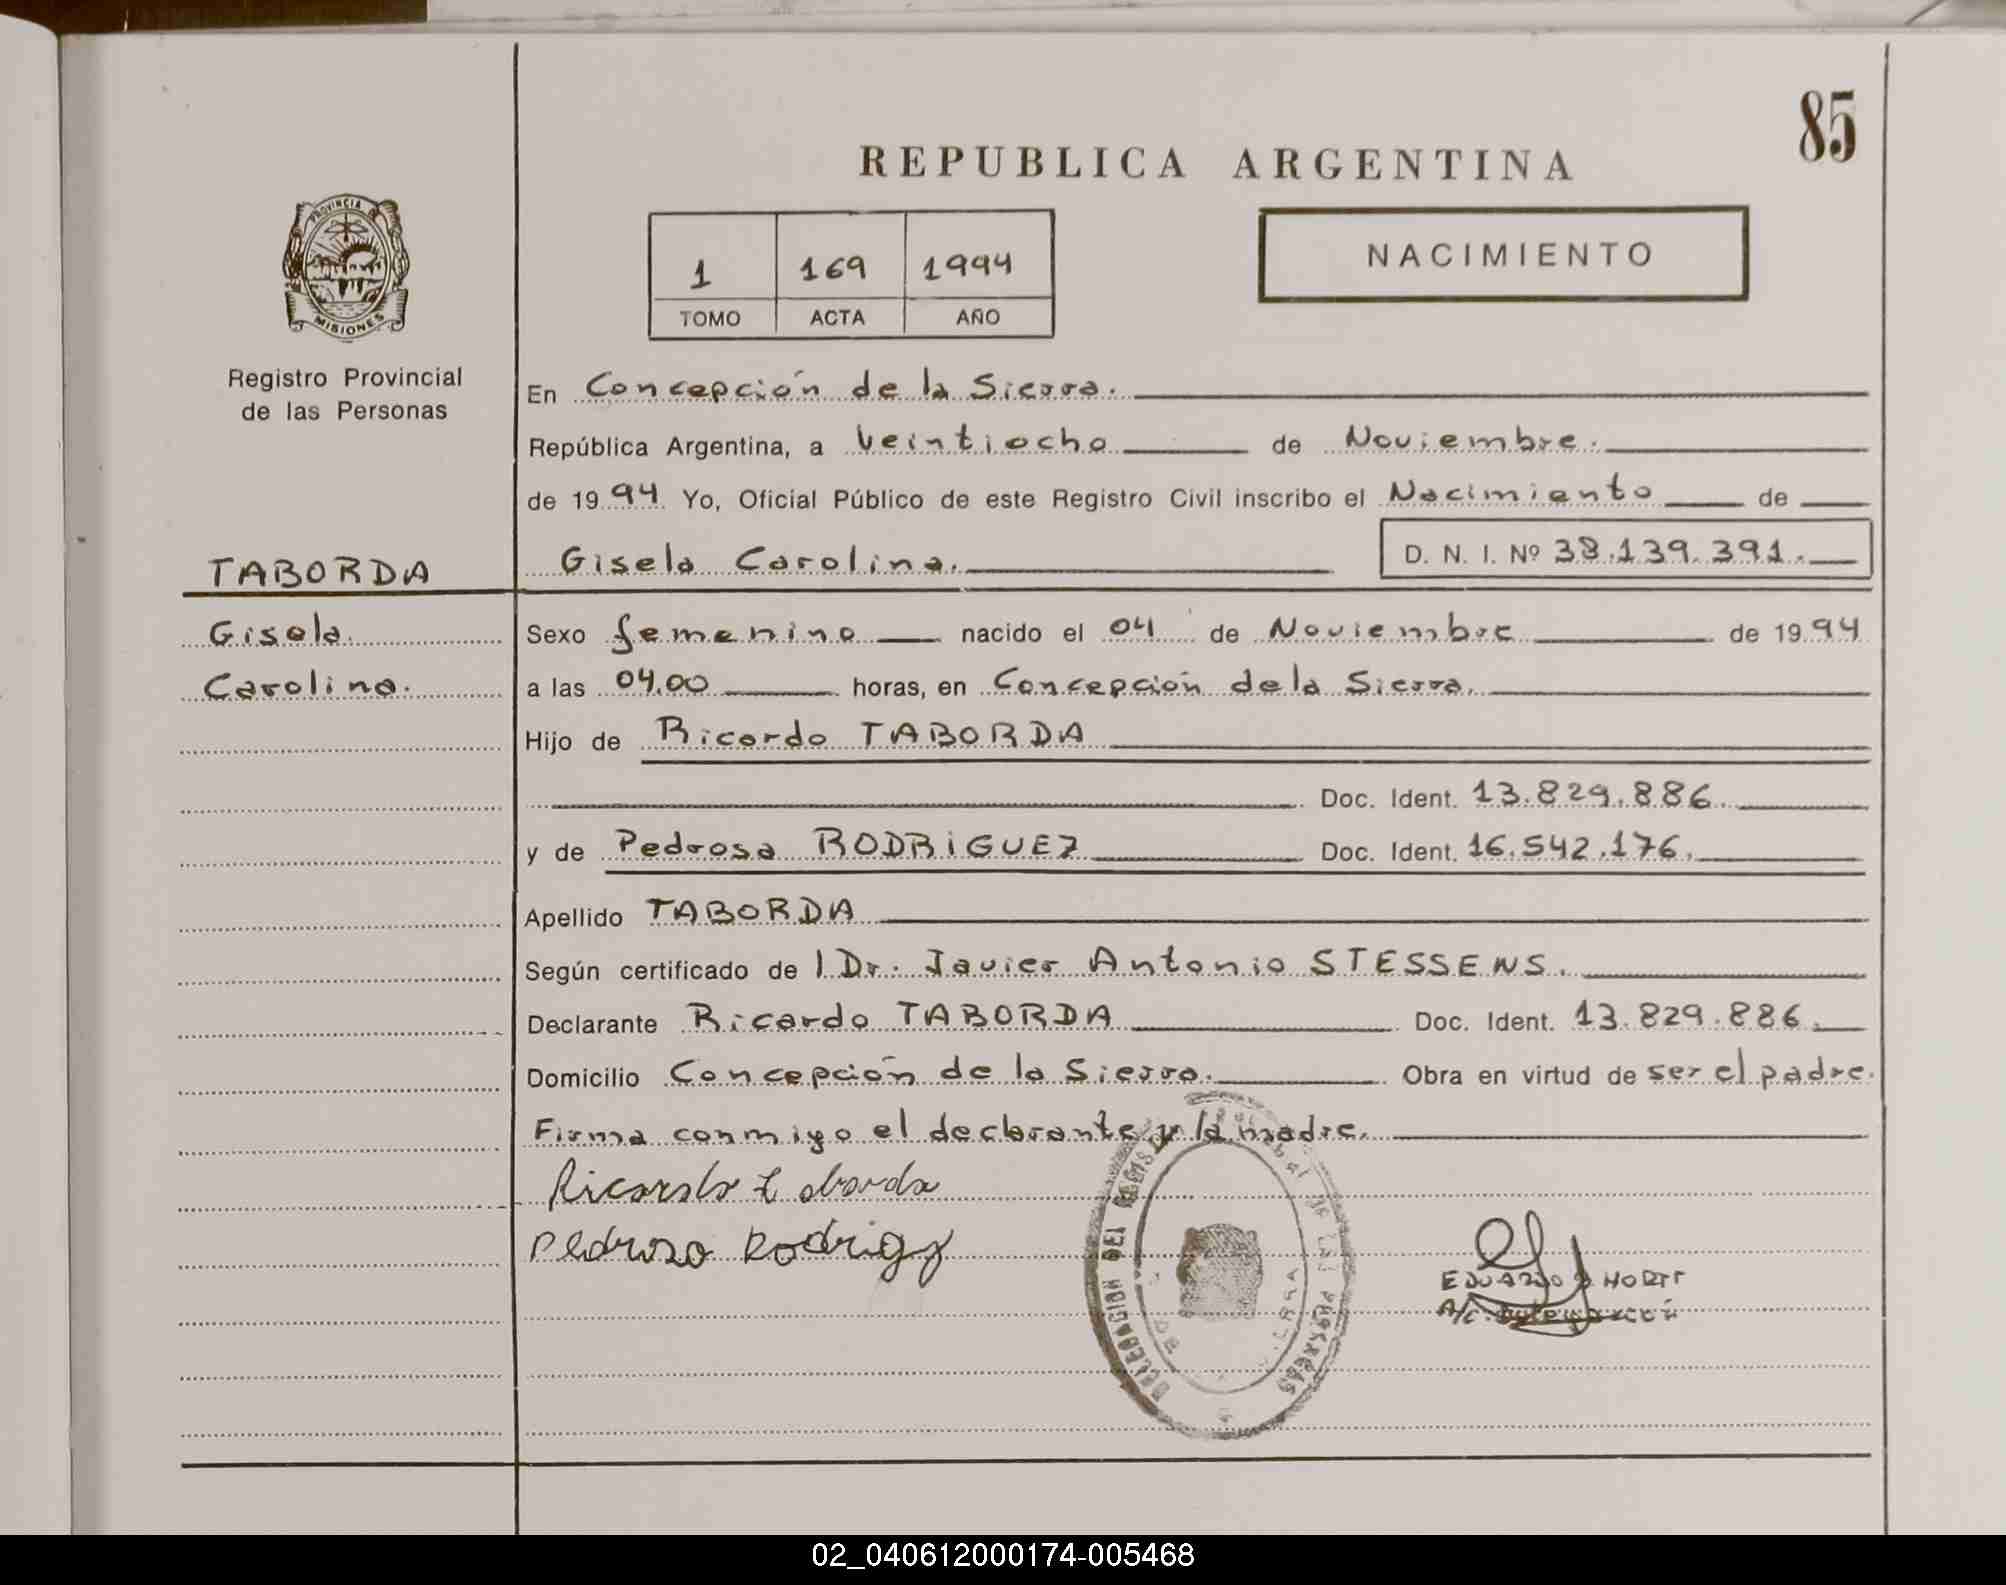 85
REPUBLICA ARGENTINA
PROVINCIA DE
MISIONES
1 169 1994
TOMO ACTA AÑO
NACIMIENTO
Registro Provincial
de las Personas
En Concepción de la Sierra.
República Argentina, a veintiocho de Noviembre.
de 1994 Yo, Oficial Público de este Registro Civil inscribo el Nacimiento de
TABORDA Gisela Carolina. D. N. I. Nº 38.139.391.
Gisela Sexo femenino nacido el 04 de Noviembre de 1994
Carolina. a las 04.00 horas, en Concepción de la Sierra.
Hijo de Ricardo TABORDA
Doc. Ident. 13.829.886.
y de Pedrosa RODRiGUEZ Doc. Ident. 16.542.176.
Apellido TABORDA
Según certificado de l Dr. Javier Antonio STESSENS.
Declarante Ricardo TABORDA Doc. Ident. 13.829.886.
Domicilio Concepción de la Sierra. Obra en virtud de ser el padre.
Firma conmigo el declarante y la madre.
Ricardo Taborda
DELEGACION DEL
EDUARDO
A/c.
02_040612000174-005468